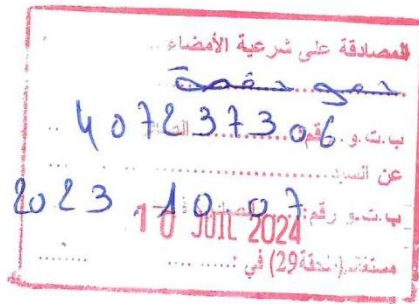 المصادقة على شرعية الأمضاء ..
حمو حفصة
ب.ت.و رقم: 407237306
عن السيد
ب.ت.و رقم: 2023 10 07
10 JUIL 2024
مستغانم (ملحقة 29) في : ........